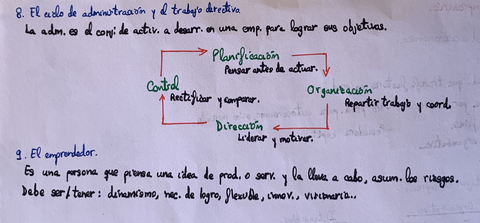 8. El ciclo de administración y el trabajo directivo.
La adm. es el conj. de activ. a desarr. en una emp. para lograr sus objetivos.
Planificación
Pensar antes de actuar.
Control
Rectificar y comparar.
Organización
Repartir trabajo y coord.
Dirección
Liderar y motivar.
9. El emprendedor.
Es una persona que piensa una idea de prod. o serv. y la lleva a cabo, asum. los riesgos.
Debe ser/tener: dinamismo, nec. de logro, flexible, innov., visionario...